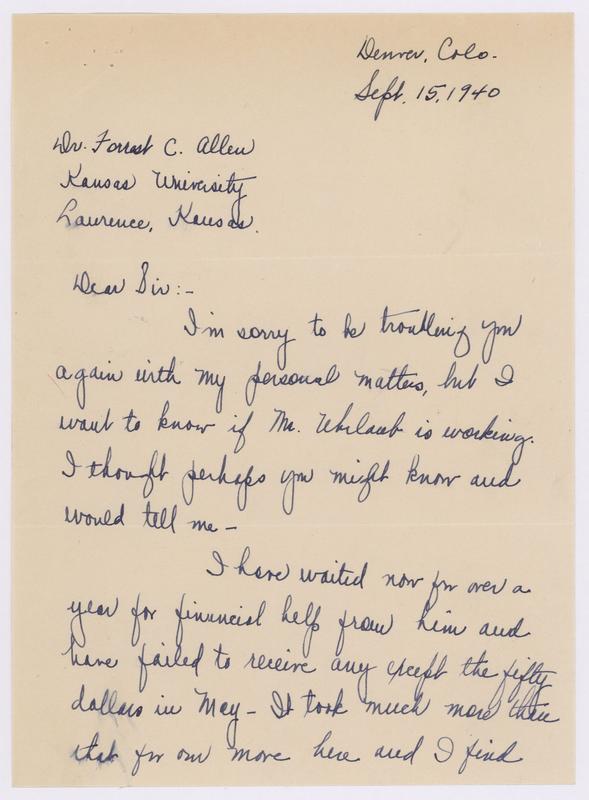 Denver, Colo.
Sept. 15, 1940
Dr. Forrest C. Allen
Kansas University
Lawrence, Kansas.
Dear Sir:-
I'm sorry to be troubling you
again with my personal matters, but I
want to know if Mr. Uhrlaub is working.
I thought perhaps you might know and
would tell me -
I have waited now for over a
year for financial help from him and
have failed to receive any except the fifty
dollars in May - It took much more than
that for our move here and I find